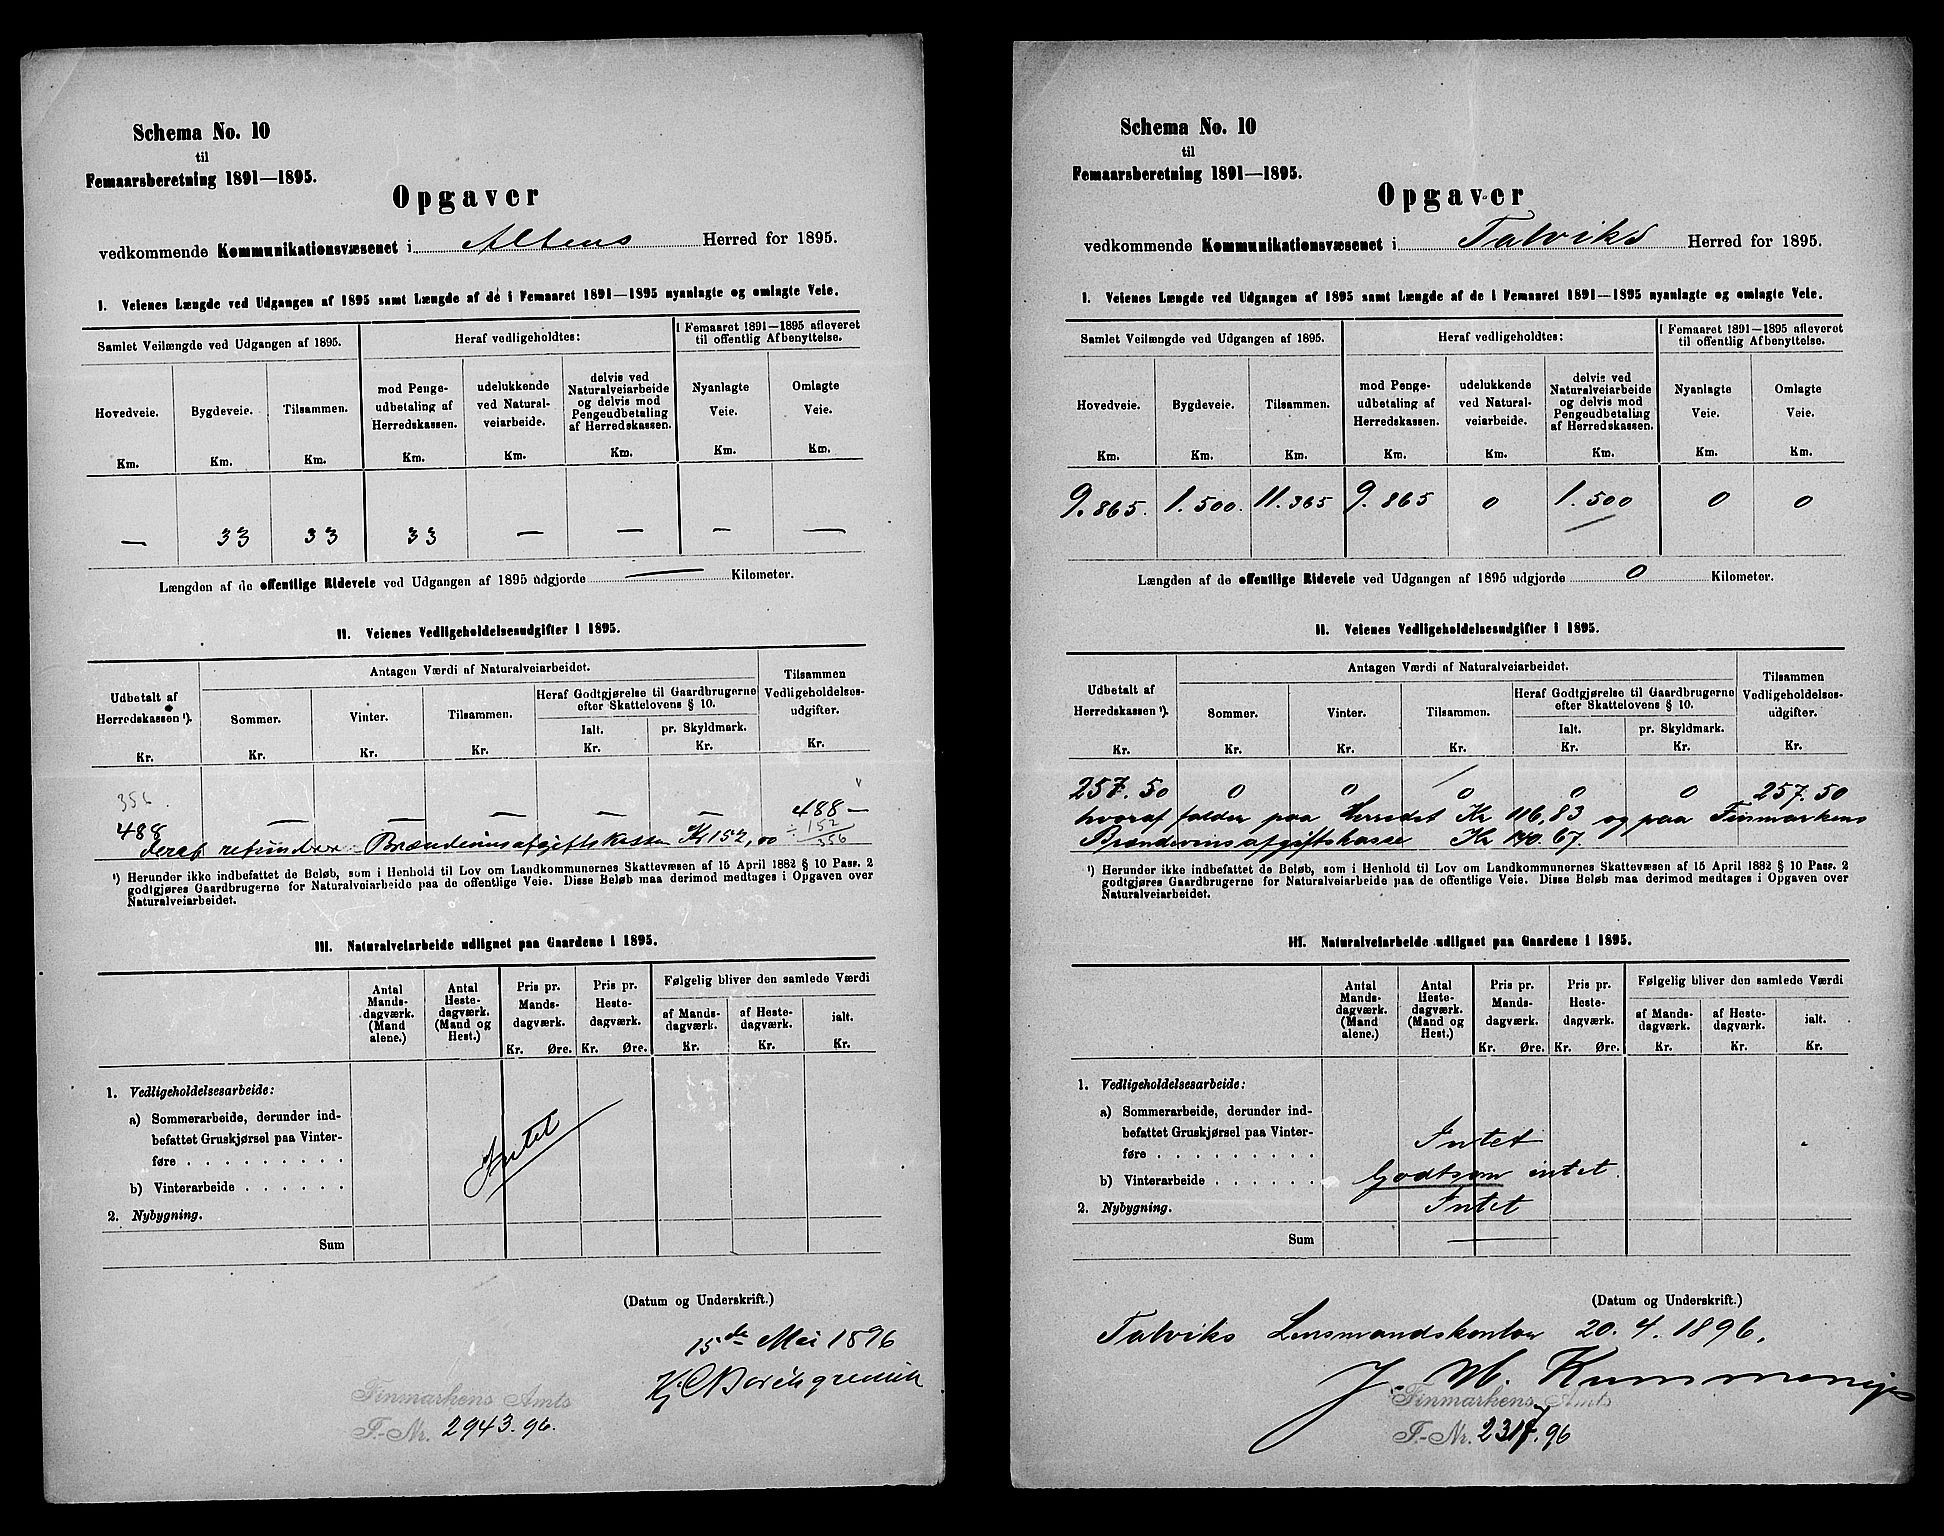 Schema No. 10
til
Femaarsberetning 1891—1895.
Opgaver
vedkommende Kommunikationsvæsenet i Altens Herred for 1895.
I. Veienes Længde ved Udgangen af 1895 samt Længde af de i Femaaret 1891—1895 nyanlagte og omlagte Veie.
Samlet Veilængde ved Udgangen af 1895.
Heraf vedligeholdtes:
I Femaaret 1891—1895 afleveret til offentlig Afbenyttelse.
Hovedveie. Bygdeveie. Tilsammen. mod Pengeudbetaling af Herredskassen. udelukkende ved Naturalveiarbeide. delvis ved Naturalveiarbeide og delvis mod Pengeudbetaling af Herredskassen. Nyanlagte Veie. Omlagte Veie.
Km. Km. Km. Km. Km. Km. Km. Km.
— 33 33 33 — — — —
Længden af de offentlige Rideveie ved Udgangen af 1895 udgjorde — Kilometer.
II. Veienes Vedligeholdelsesudgifter i 1895.
Udbetalt af Herredskassen ¹).
Antagen Værdi af Naturalveiarbeidet.
Tilsammen Vedligeholdelsesudgifter.
Sommer. Vinter. Tilsammen. Heraf Godtgjørelse til Gaardbrugerne efter Skattelovens § 10.
Ialt. pr. Skyldmark.
Kr. Kr. Kr. Kr. Kr. Kr. Kr.
356.
488 — — — — — 488 —
÷ 152
356
deraf refunderer Brændevinsafgiftskassen Kr 152,00
¹) Herunder ikke indbefattet de Beløb, som i Henhold til Lov om Landkommunernes Skattevæsen af 15 April 1882 § 10 Pass. 2
godtgjøres Gaardbrugerne for Naturalveiarbeide paa de offentlige Veie. Disse Beløb maa derimod medtages i Opgaven over
Naturalveiarbeidet.
III. Naturalveiarbeide udlignet paa Gaardene i 1895.
Antal Mandsdagværk. (Mand alene.) Antal Hestedagværk. (Mand og Hest.) Pris pr. Mandsdagværk. Pris pr. Hestedagværk. Følgelig bliver den samlede Værdi
af Mandsdagværk. af Hestedagværk. ialt.
Kr. Øre. Kr. Øre. Kr. Kr. Kr.
1. Vedligeholdelsesarbeide:
a) Sommerarbeide, derunder ind-
befattet Gruskjørsel paa Vinter-
føre . . . . . . . . .
Intet
b) Vinterarbeide . . . . . .
2. Nybygning.
Sum
(Datum og Underskrift.)
15de Mai 1896
Finmarkens Amts
F.-Nr. 2943.96.
Schema No. 10
til
Femaarsberetning 1891—1895.
Opgaver
vedkommende Kommunikationsvæsenet i Talviks Herred for 1895.
I. Veienes Længde ved Udgangen af 1895 samt Længde af de i Femaaret 1891—1895 nyanlagte og omlagte Veie.
Samlet Veilængde ved Udgangen af 1895.
Heraf vedligeholdtes:
I Femaaret 1891—1895 afleveret til offentlig Afbenyttelse.
Hovedveie. Bygdeveie. Tilsammen. mod Pengeudbetaling af Herredskassen. udelukkende ved Naturalveiarbeide. delvis ved Naturalveiarbeide og delvis mod Pengeudbetaling af Herredskassen. Nyanlagte Veie. Omlagte Veie.
Km. Km. Km. Km. Km. Km. Km. Km.
9.865. 1.500. 11.365 9.865 0 1.500 0 0
Længden af de offentlige Rideveie ved Udgangen af 1895 udgjorde 0 Kilometer.
II. Veienes Vedligeholdelsesudgifter i 1895.
Udbetalt af Herredskassen ¹).
Antagen Værdi af Naturalveiarbeidet.
Tilsammen Vedligeholdelsesudgifter.
Sommer. Vinter. Tilsammen. Heraf Godtgjørelse til Gaardbrugerne efter Skattelovens § 10.
Ialt. pr. Skyldmark.
Kr. Kr. Kr. Kr. Kr. Kr. Kr.
257.50 0 0 0 0 0 257.50
hvoraf falder paa Herredet Kr 116,83 og paa Finmarkens
Brændevinsafgiftskasse Kr 140.67.
¹) Herunder ikke indbefattet de Beløb, som i Henhold til Lov om Landkommunernes Skattevæsen af 15 April 1882 § 10 Pass. 2
godtgjøres Gaardbrugerne for Naturalveiarbeide paa de offentlige Veie. Disse Beløb maa derimod medtages i Opgaven over
Naturalveiarbeidet.
III. Naturalveiarbeide udlignet paa Gaardene i 1895.
Antal Mandsdagværk. (Mand alene.) Antal Hestedagværk. (Mand og Hest.) Pris pr. Mandsdagværk. Pris pr. Hestedagværk. Følgelig bliver den samlede Værdi
af Mandsdagværk. af Hestedagværk. ialt.
Kr. Øre. Kr. Øre. Kr. Kr. Kr.
1. Vedligeholdelsesarbeide:
a) Sommerarbeide, derunder ind-
befattet Gruskjørsel paa Vinter-
føre . . . . . . . . . Intet
b) Vinterarbeide . . . . . . Godtsom intet.
2. Nybygning. Intet
Sum
(Datum og Underskrift.)
Talviks Lensmandskontor 20.4.1896.
J. M. Kummeneje
Finmarkens Amts
F.-Nr. 2317.96